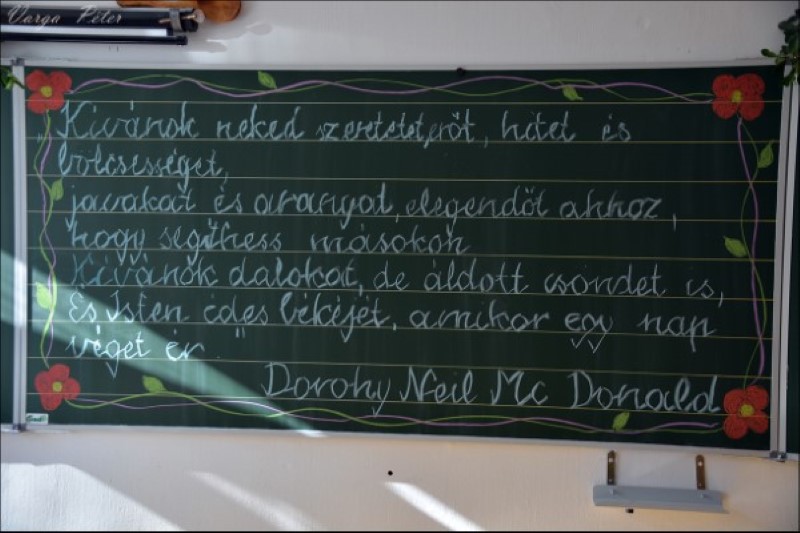 Varga Péter
Kívánok neked szeretetet, erőt, hitet és
bölcsességet,
javakat és aranyat, elegendőt ahhoz,
hogy segíthess másokon
Kívánok dalokat, de áldott csöndet is,
És Isten édes békéjét, amikor egy nap
véget ér."
Dorohy Neil Mc Donald